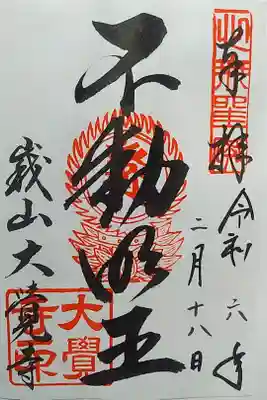 奉拝
令和六年
二月十八日
不動明王
峩山大覚寺
大覺
寺印